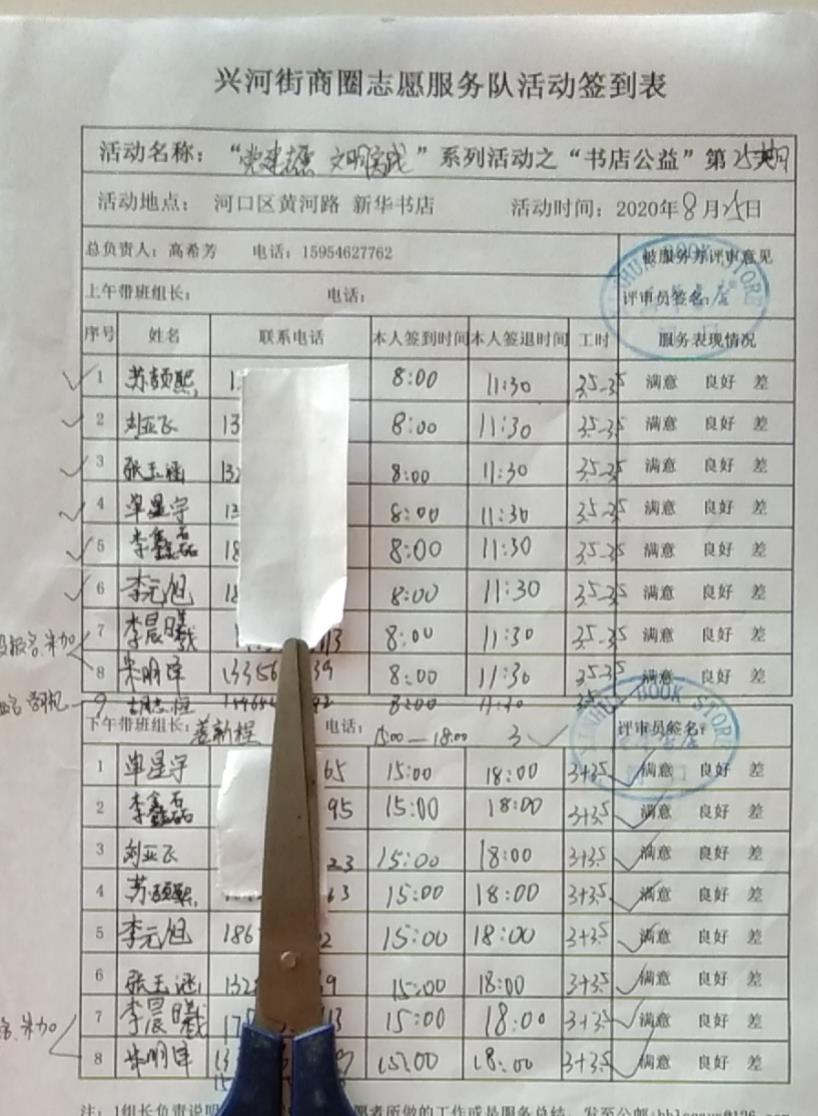 兴河街商圈志愿服务队活动签到表
活动名称：“党建 文明实践”系列活动之“书店公益”第25期
活动地点： 河口区黄河路 新华书店 活动时间：2020年8月25日
总负责人：高希芳 电话：15954627762 被服务方评审意见
上午带班组长： 电话： 评审员签名：
序号 姓名 联系电话 本人签到时间 本人签退时间 工时 服务表现情况
1 苏颜熙 1 8:00 11:30 3.5-3.5 满意 良好 差
2 刘亚飞 13 8:00 11:30 3.5-3.5 满意 良好 差
3 张玉涵 132 8:00 11:30 3.5-3.5 满意 良好 差
4 单星宇 8:00 11:30 3.5-3.5 满意 良好 差
5 李鑫磊 18 8:00 11:30 3.5-3.5 满意 良好 差
6 李元旭 18 8:00 11:30 3.5-3.5 满意 良好 差
7 李晨曦 13 8:00 11:30 3.5-3.5 满意 良好 差
8 朱明泽 13356 39 8:00 11:30 3.5-3.5 满意 良好 差
9 8:00 11:30
下午带班组长： 电话： 15:00—18:00 3 评审员签名：
1 单星宇 65 15:00 18:00 3+3.5 满意 良好 差
2 李鑫磊 95 15:00 18:00 3+3.5 满意 良好 差
3 刘亚飞 23 15:00 18:00 3+3.5 满意 良好 差
4 苏颜熙 63 15:00 18:00 3+3.5 满意 良好 差
5 李元旭 186 2 15:00 18:00 3+3.5 满意 良好 差
6 张玉涵 132 9 15:00 18:00 3+3.5 满意 良好 差
7 李晨曦 17 13 15:00 18:00 3+3.5 满意 良好 差
8 朱明泽 13 9 15:00 18:00 3+3.5 满意 良好 差
XINHUA BOOK STORE
XINHUA BOOK STORE
注：1组长负责说明